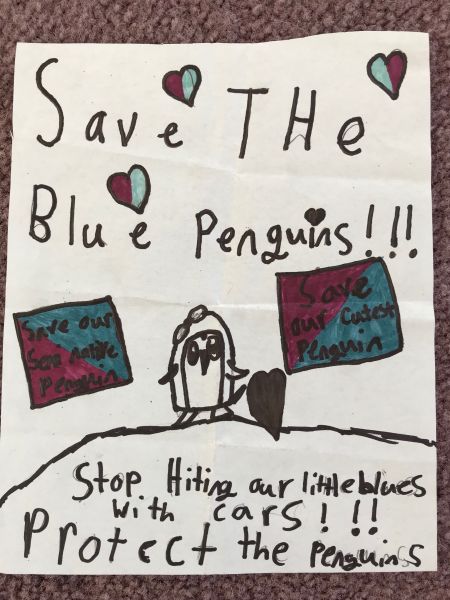 Save THe
Blue Penguins!!!
Save our
Semi native
Penguin
Save
our cutest
Penguin
Stop Hiting our little blues
with cars!!!
Protect the Penguins